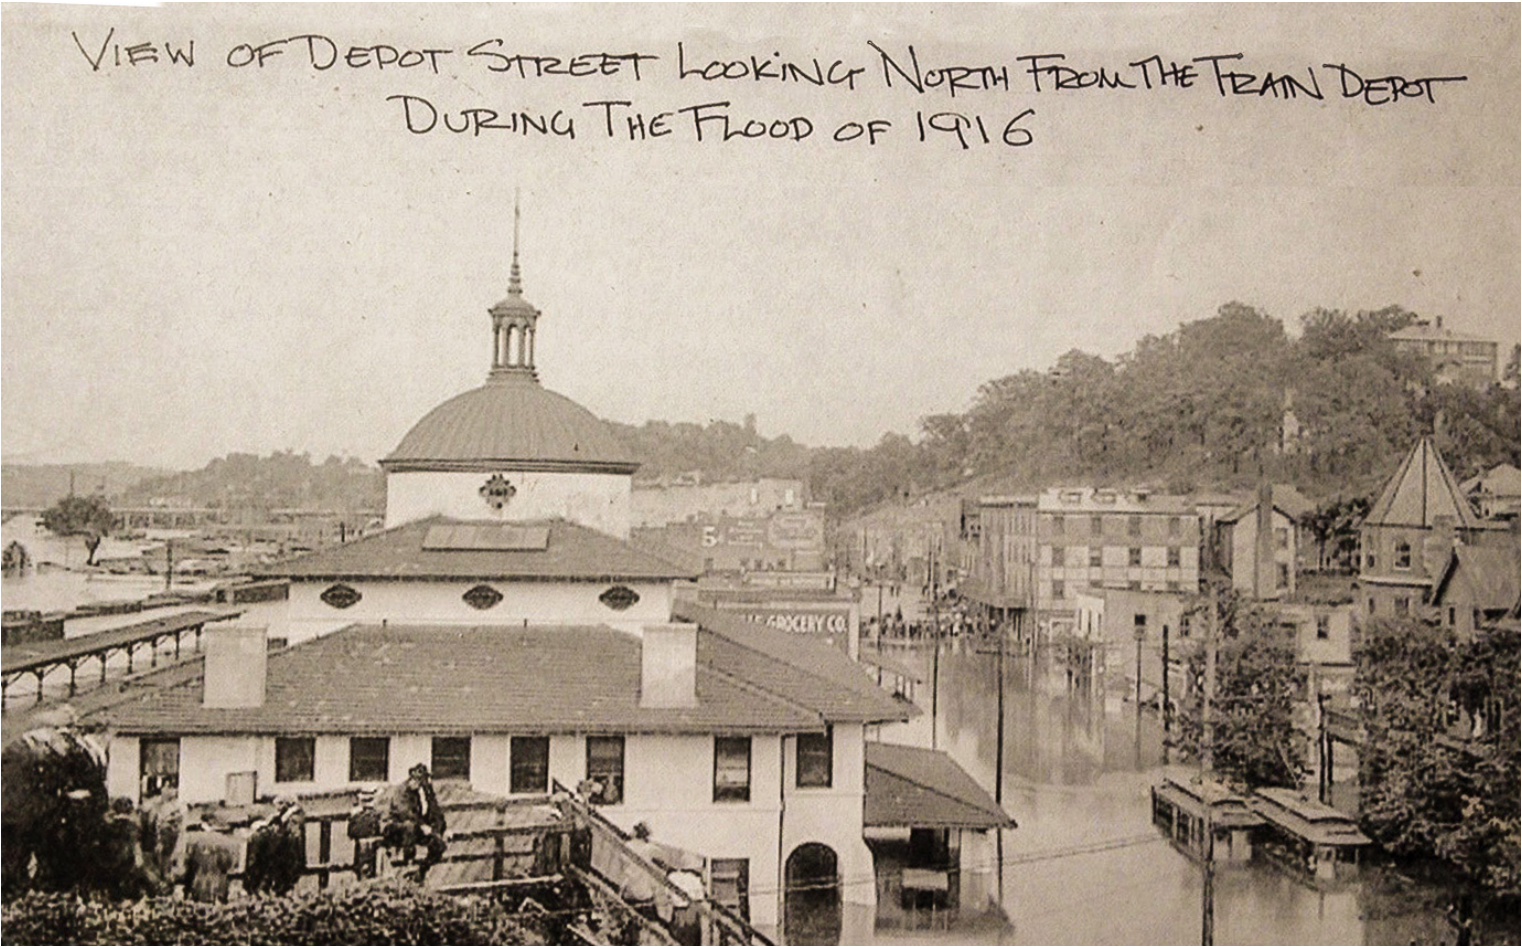 VIEW OF DEPOT STREET LOOKING NORTH FROM THE TRAIN DEPOT
DURING THE FLOOD OF 1916
GROCERY CO.